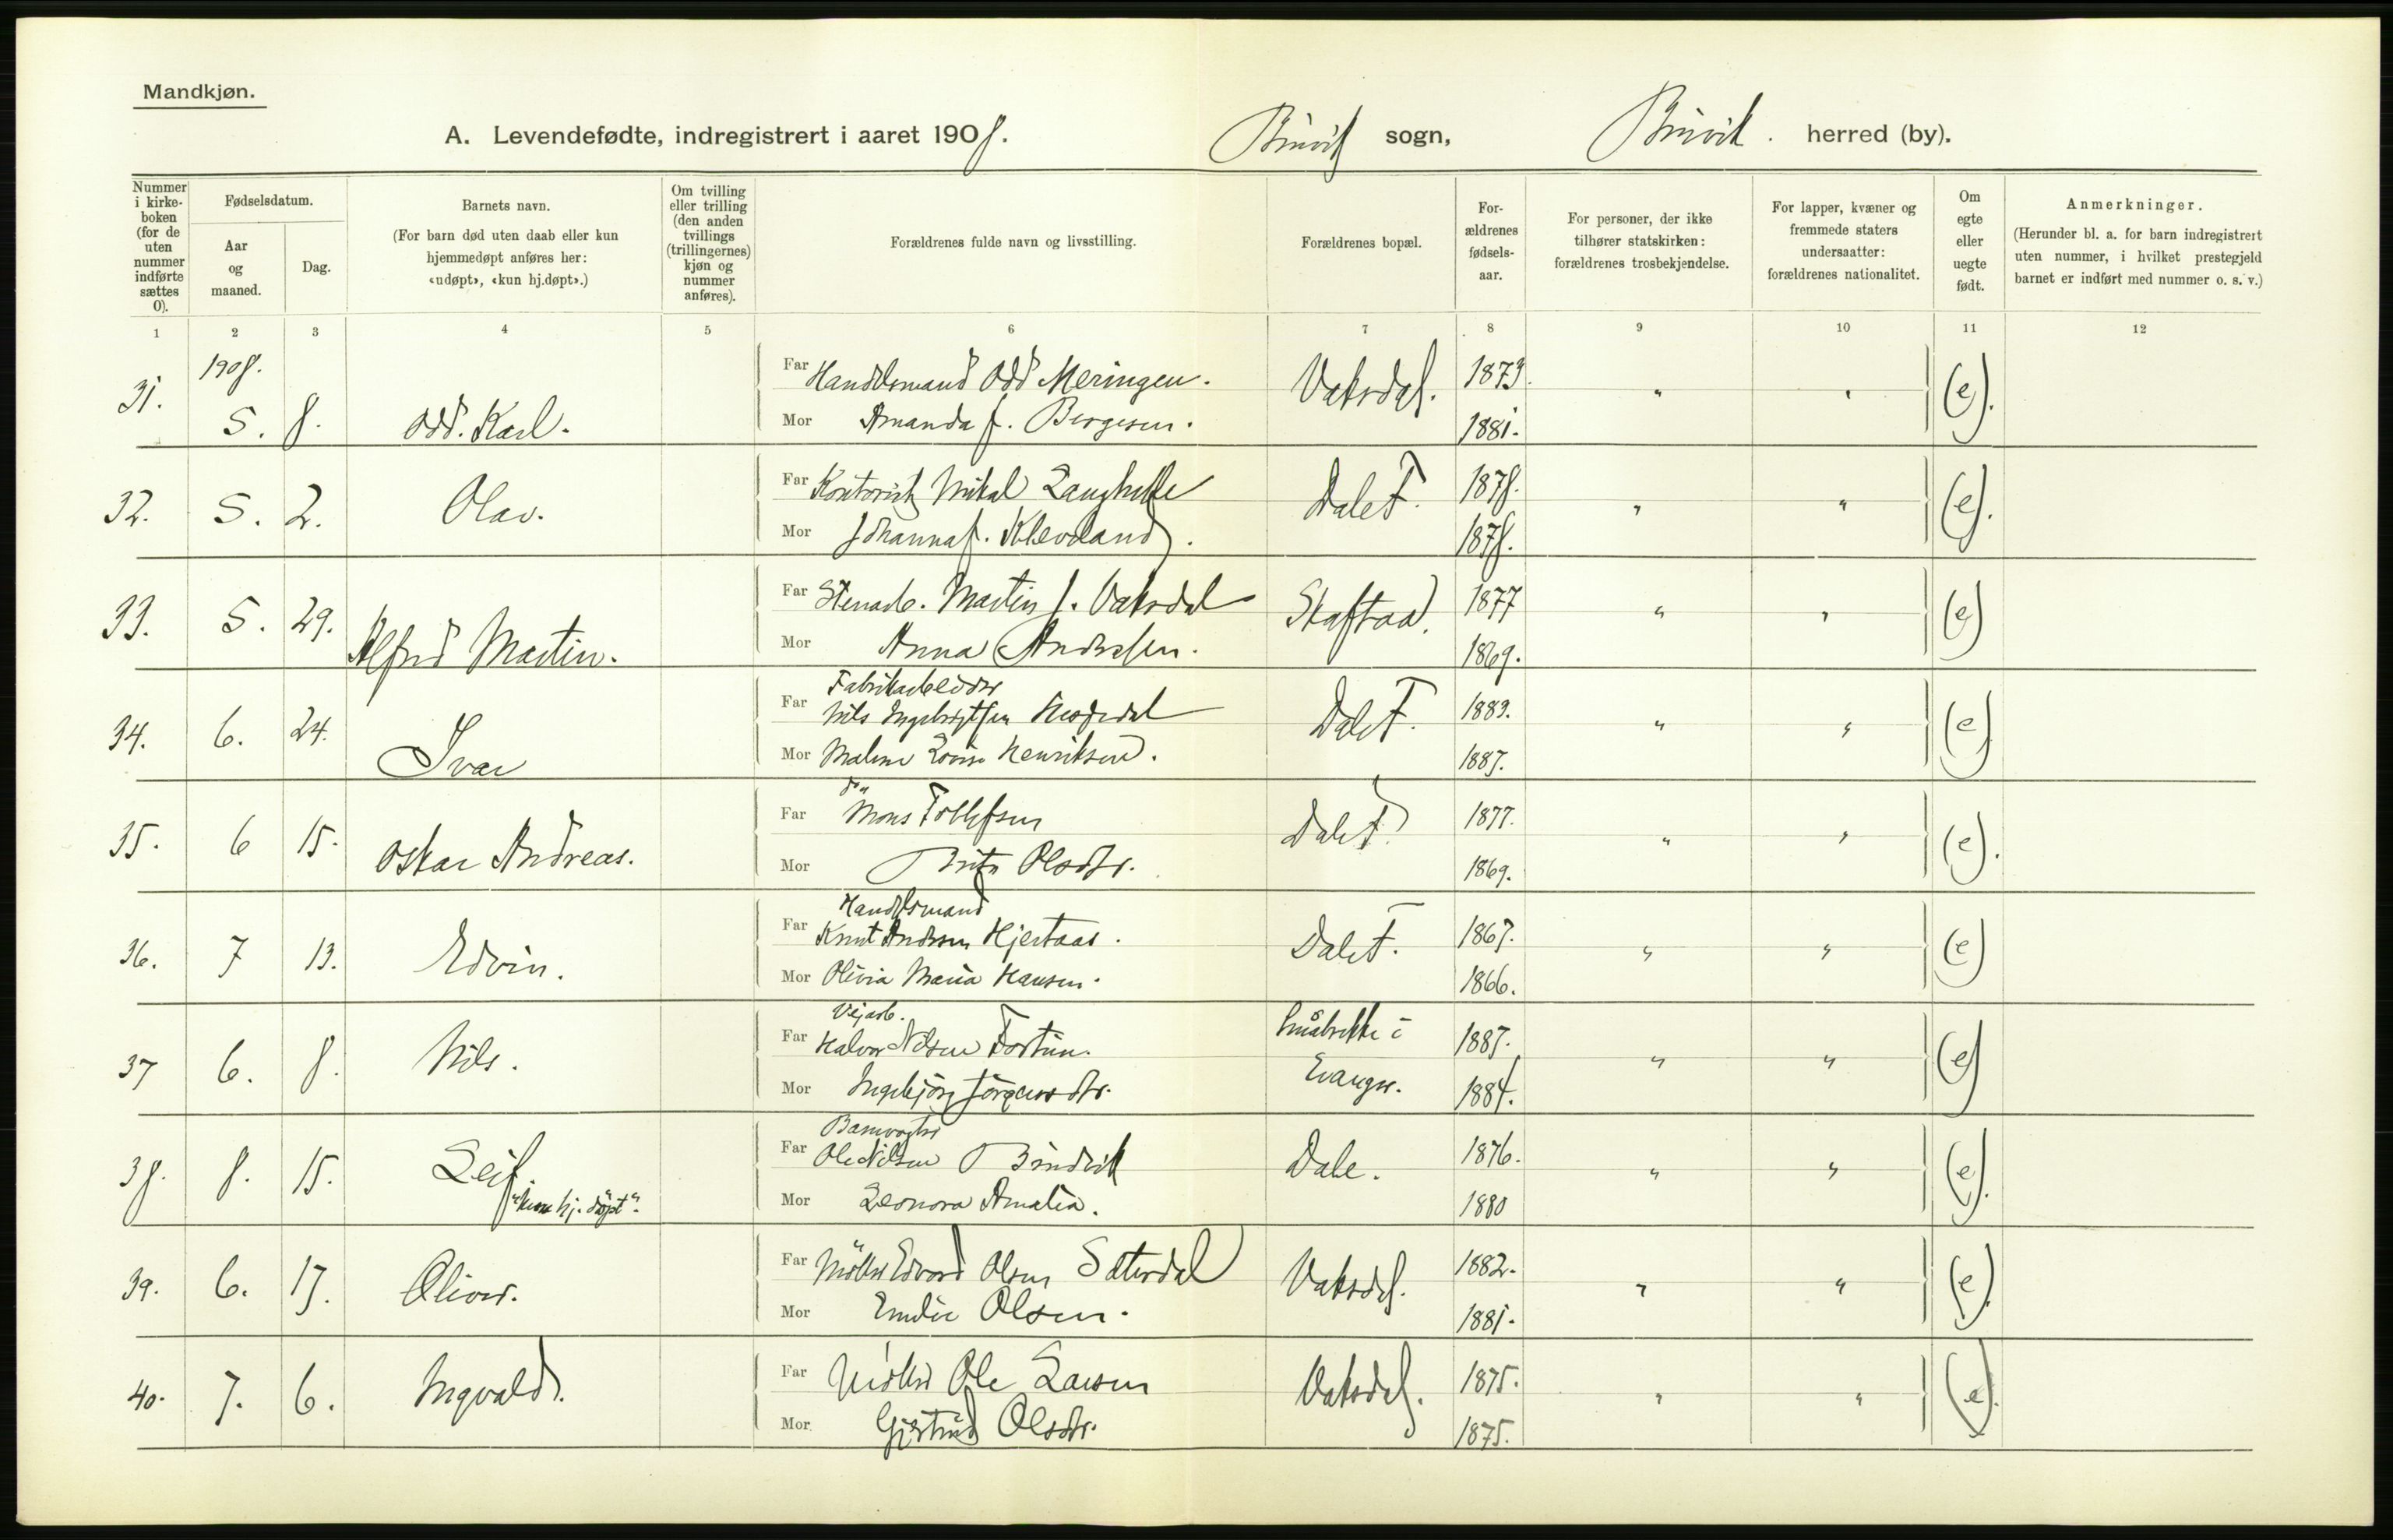 Mandkjøn.
A. Levendefødte, indregistrert i aaret 1908. Bruvik sogn, Bruvik. herred (by).
Nummer i kirke-boken (for de uten nummer indførte sættes 0).
Fødselsdatum.
Aar og maaned.
Dag.
Barnets navn.
(For barn død uten daab eller kun hjemmedøpt anføres her: «udøpt», «kun hj.døpt».)
Om tvilling eller trilling (den anden tvillings (trillingernes) kjøn og nummer anføres).
Forældrenes fulde navn og livsstilling.
Forældrenes bopæl.
For-ældrenes fødsels-aar.
For personer, der ikke tilhører statskirken: forældrenes trosbekjendelse.
For lapper, kvæner og fremmede staters undersaatter: forældrenes nationalitet.
Om egte eller uegte født.
Anmerkninger.
(Herunder bl. a. for barn indregistrert uten nummer, i hvilket prestegjeld barnet er indført med nummer o. s. v.)
1 2 3 4 5 6 7 8 9 10 11 12
1908.
31. 5. 8. Odd. Karl. Far Handelsmand Odd Meringen. Vaksdal. 1873. " " (e).
Mor Amanda f. Birgesen. 1881.
32. 5. 2. Olav. Far Kontorist Mikal Langhelle Dale F. 1878. " " (e).
Mor Johanna f. Kleveland. 1878.
33. 5. 29. Alfred Martin. Far Stenarb. Martin J. Vaksdal Skaftaa. 1877 " " (e)
Mor Anna Andersen. 1869.
34. 6. 24. Ivar Far Fabrikarbeider
Nils Ingebrigtsen Dale F. 1883. " " (e)
Mor Malene Lovise Henriksen. 1887.
35. 6 15. Oskar Andreas. Far do
Mons Tollefsen Dale F. 1877. " " (e).
Mor Brita Olsdtr. 1869.
36. 7 13. Edvin. Far Handelsmand
Knut Andersen Hjertaas. Dale F. 1867. " " (e)
Mor Olivia Maria Hansen. 1866.
37 6. 8. Nils. Far Vejarb.
Halvor Nilsen Fortun. Småbrekke i 1887. " " (e)
Mor Ingebjørg Jørgensdtr. Evanger. 1884.
38. 8. 15. Leif. Far Banevogter
Ole Nilsen Dale. 1876. " " (e).
"kun hj. døpt". Mor Leonora Amalia. 1880
39. 6. 17. Oliver. Far Møller Edvard Olsen Vaksdal. 1882. " " (e).
Mor Emilie Olsen. 1881.
40. 7. 6. Ingvald. Far Møller Ole Larsen Vaksdal. 1875. " " (e).
Mor Gjertrud Olsdtr. 1875.